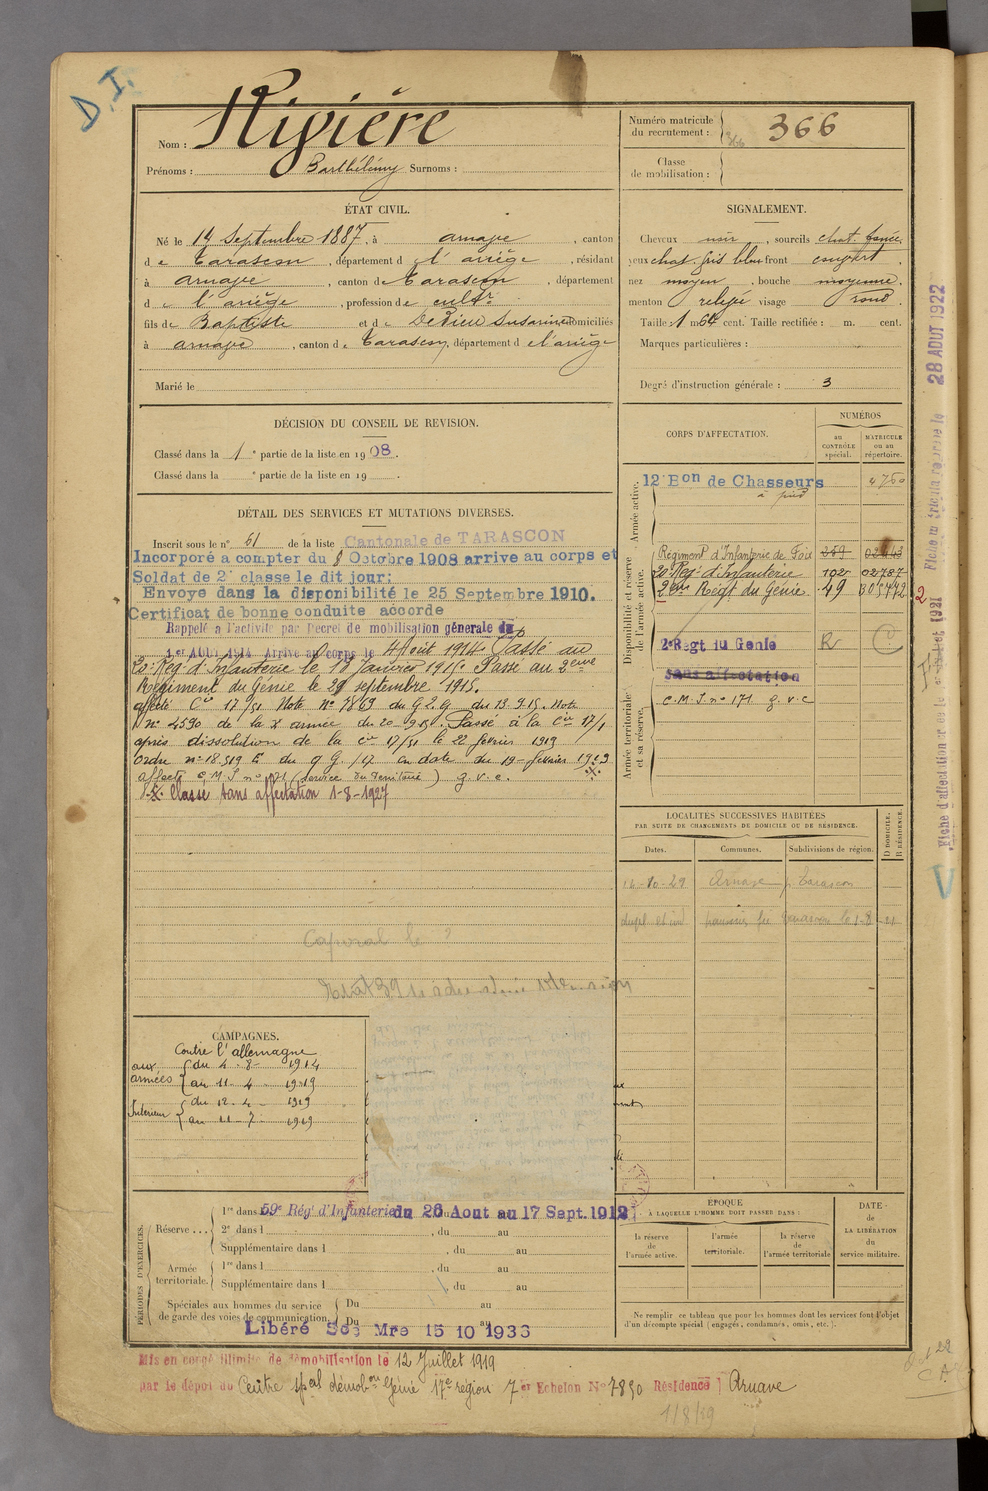 D. I.
Nom : Rivière
Prénoms : Barthélémy Surnoms :
Numéro matricule du recrutement : 366 366
Classe de mobilisation :
ÉTAT CIVIL.
Né le 14 Septembre 1887, à arnave, canton
de Tarascon, département d l'ariège, résidant
à arnave, canton de Tarascon, département
de l'ariège, profession de cultr
fils de Baptiste et de Dedieu Susanne domiciliés
à arnave, canton de Tarascon, département de l'ariège
Marié le
SIGNALEMENT.
Cheveux noir, sourcils chat. foncé,
yeux chat. gris bleu front couvert,
nez moyen, bouche moyenne,
menton relevé visage rond.
Taille : 1 m 64 cent. Taille rectifiée : m. cent.
Marques particulières :
Degré d'instruction générale : 3
DÉCISION DU CONSEIL DE REVISION.
Classé dans la 1e partie de la liste en 1908.
Classé dans la e partie de la liste en 19 .
DÉTAIL DES SERVICES ET MUTATIONS DIVERSES.
Inscrit sous le n° 51 de la liste Cantonale de TARASCON
Incorporé a compter du 8 Octobre 1908 arrive au corps et
Soldat de 2e classe le dit jour:
Envoye dans la disponibilité le 25 Septembre 1910.
Certificat de bonne conduite accorde
Rappelé a l'activite par Decret de mobilisation générale du
1er AOUT 1914 Arrivé au corps le 4 Août 1914. Passé au
Rég. d'Infanterie le 18 Janvier 1915. Passé au 2eme
Régiment du Génie le 29 septembre 1915.
affecté Cie 17/51 Note N° 7869 du G.Q.G du 13.9.15. Note
n° 4590 de la X armée du 20-9-15. Passé à la Cie 17/1
après dissolution de la Cie 17/51 le 22 fevrier 1919
Ordre n° 18.519 du G.Q.G. en date du 19 fevrier 1919
affecté C.M.I n° 171 (service du Territoire) g.v.c.
Classé sans affectation 1-8-1927
Caporal le ?
CORPS D'AFFECTATION.
NUMÉROS
au CONTRÔLE spécial.
MATRICULE ou au répertoire.
Armée active.
12e Bon de Chasseurs 4760
à pied
Disponibilité et réserve de l'armée active.
Régiment d'Infanterie de Foix 259
Rég. d'Infanterie 1025 02787
2eme Regt du Génie 49
2e Regt du Genie R C
sans affectation
Armée territoriale et sa réserve.
C.M.I. n° 171 g.v.c
LOCALITES SUCCESSIVES HABITÉES
PAR SUITE DE CHANGEMENTS DE DOMICILE OU DE RÉSIDENCE.
Dates. Communes. Subdivisions de région. D DOMICILE. R RÉSIDENCE.
14-10-29 Arnave p. Tarascon
CAMPAGNES.
Contre l'allemagne
aux armées du 4-8-1914
au 11-4-1919
Intérieur du 12-4-1919
au 11-7-1919
PÉRIODES D'EXERCICES.
Réserve... 1re dans l 59e Rég. d'Infanterie du 26 Aout au 17 Sept. 1912
2e dans l , du au
Supplémentaire dans l , du au
Armée territoriale. 1re dans l , du au
Supplémentaire dans l du au
Spéciales aux hommes du service de garde des voies de communication. Du au
Du au
Libéré Sce Mre 15 10 1936
ÉPOQUE
À LAQUELLE L'HOMME DOIT PASSER DANS :
la réserve de l'armée active.
l'armée territoriale.
la réserve de l'armée territoriale
DATE DE LA LIBÉRATION du service militaire.
Ne remplir ce tableau que pour les hommes dont les services font l'objet
d'un décompte spécial (engagés, condamnés, omis, etc.).
Mis en congé illimité de démobilisation le 12 Juillet 1919
par le dépôt du Centre spal démobon Génie 17e région 7er Echelon N° 7890 Résidence Arnave
1/8/39
28 AOUT 1922